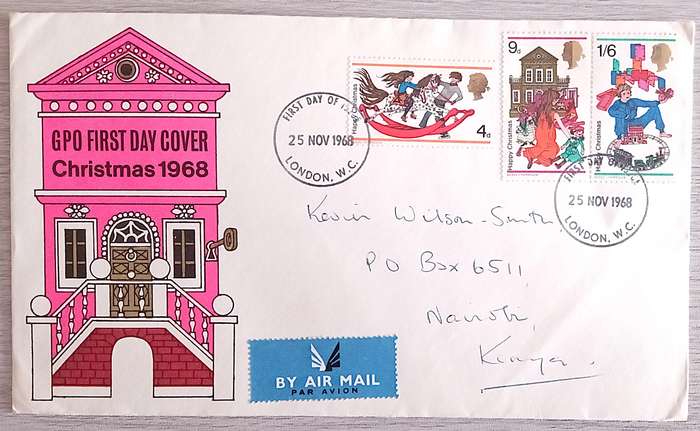 GPO FIRST DAY COVER
Christmas 1968
Happy Christmas
4d
9d
Happy Christmas
1/6
Happy Christmas
FIRST DAY OF
25 NOV 1968
LONDON, W.C.
FIRST DAY OF
25 NOV 1968
LONDON, W.C.
Kevin Wilson-Smith,
PO Box 6511
Nairobi,
Kenya.
BY AIR MAIL
PAR AVION